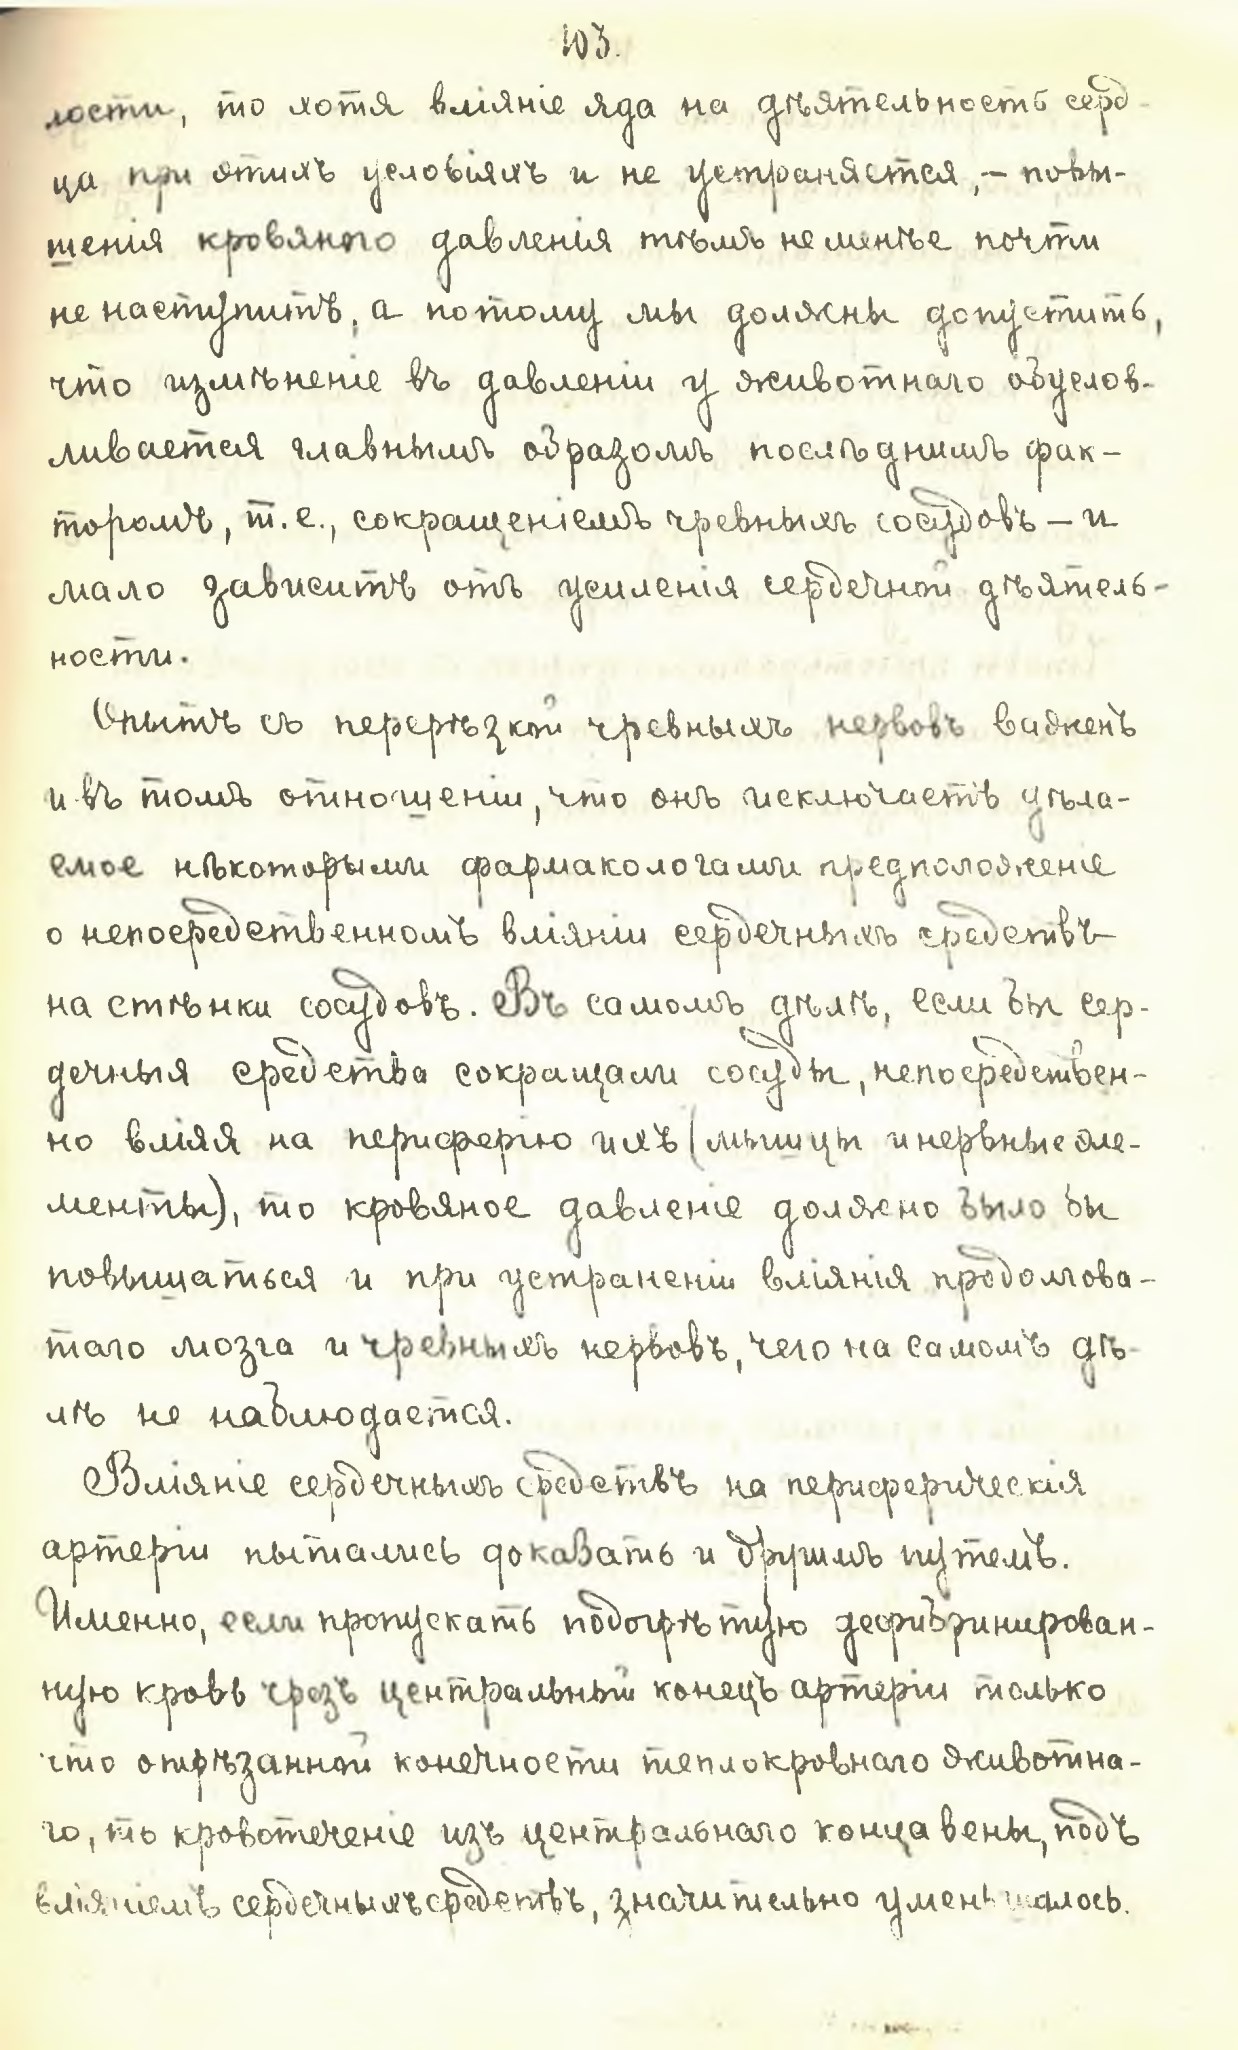 103.
лости, то хотя вліяніе яда на дѣятельность серд-
ца при этихъ условіяхъ и не устраняется, – повы-
шенія кровяного давленія тѣмъ не менѣе почти
не наступитъ, а потому мы должны допустить,
что измѣненіе въ давленіи у животнаго обуслов-
ливается главнымъ образомъ послѣднимъ фак-
торомъ, т.е., сокращеніемъ чревныхъ сосудовъ – и
мало зависитъ отъ усиленія сердечной дѣятель-
ности.
Опытъ съ перерѣзкой чревныхъ нервовъ важенъ
и въ томъ отношеніи, что онъ исключаетъ дѣла-
емое нѣкоторыми фармакологами предположеніе
о непосредственномъ вліяніи сердечныхъ средствъ
на стѣнки сосудовъ. Въ самомъ дѣлѣ, если бы сер-
дечныя средства сокращали сосуды, непосредствен-
но вліяя на периферію ихъ (мышцы и нервные эле-
менты), то кровяное давленіе должно было бы
повышаться и при устраненіи вліянія продолгова-
таго мозга и чревныхъ нервовъ, чего на самомъ дѣ-
лѣ не наблюдается.
Вліяніе сердечныхъ средствъ на периферическія
артеріи пытались доказать и другимъ путемъ.
Именно, если пропускать подогрѣтую дефибринирован-
ную кровь чрезъ центральный конецъ артеріи только
что отрѣзанной конечности теплокровнаго животна-
го, то кровотеченіе изъ центральнаго конца вены, подъ
вліяніемъ сердечныхъ средствъ, значительно уменьшалось.